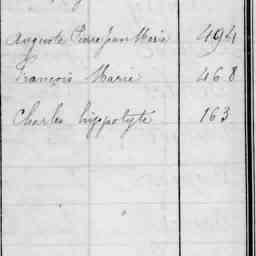 Auguste Pierre Jean Marie 494
François Marie 468
Charles hippolyte 163